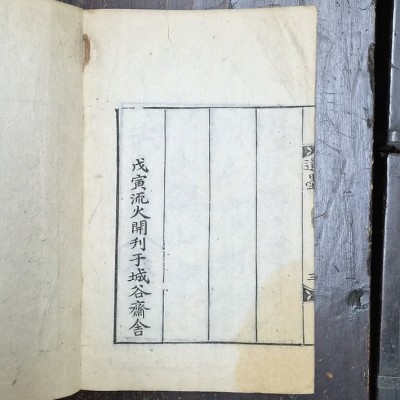 戊寅流火開刊于城谷齋舍
三